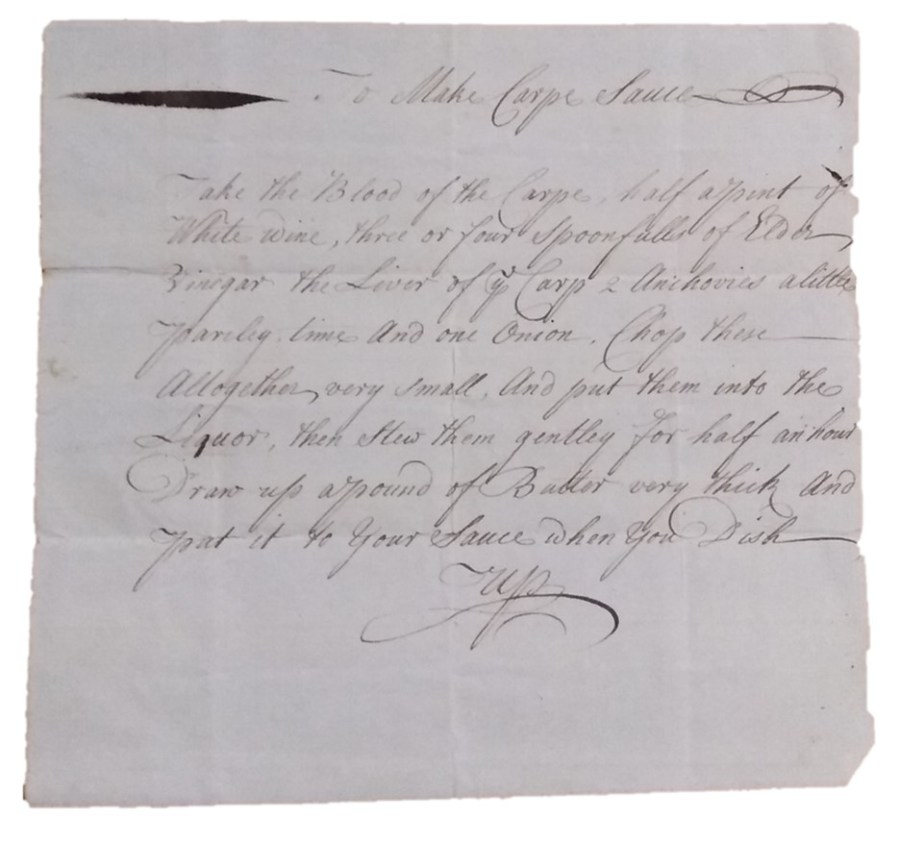 To Make Carpe Sauce
Take the Blood of the Carpe, half a pint of
White wine, three or four Spoonfulls of Elder
Vinegar the Liver of ye Carp 2 Anchovies a little
Parsley time And one Onion, Chop these
Alltogether very small, And put them into the
Liquor, then Stew them gentley for half an hour
Draw up a pound of Butter very thick And
put it to Your Sauce when You Dish
Up